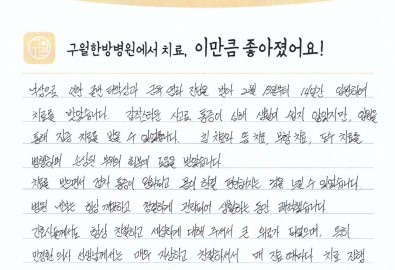 구월한방병원에서 치료, 이만큼 좋아졌어요!
낙상으로 인한 골반 타박상과 근육 염좌 진단을 받아 2월 15일부터 14일간 입원하여
치료를 받았습니다. 갑작스러운 사고로 통증이 심해 생활이 쉽지 않았지만, 입원을
통해 집중 치료를 받을 수 있었습니다. 침 치료와 뜸 치료, 부항 치료, 도수 치료를
병행하며 손상된 부위의 회복에 도움을 받았습니다.
치료를 받으면서 점차 통증이 완화되고 몸이 한결 편안해지는 것을 느낄 수 있었습니다.
병원 내부는 항상 깨끗하고 청결하게 관리되어 생활하는 동안 쾌적했습니다.
간호사분들께서도 항상 친절하고 세심하게 대해 주셔서 큰 위로가 되었으며, 특히
한의 선생님께서는 매우 자상하고 친절하셔서 매 진료 때마다 치료 진행